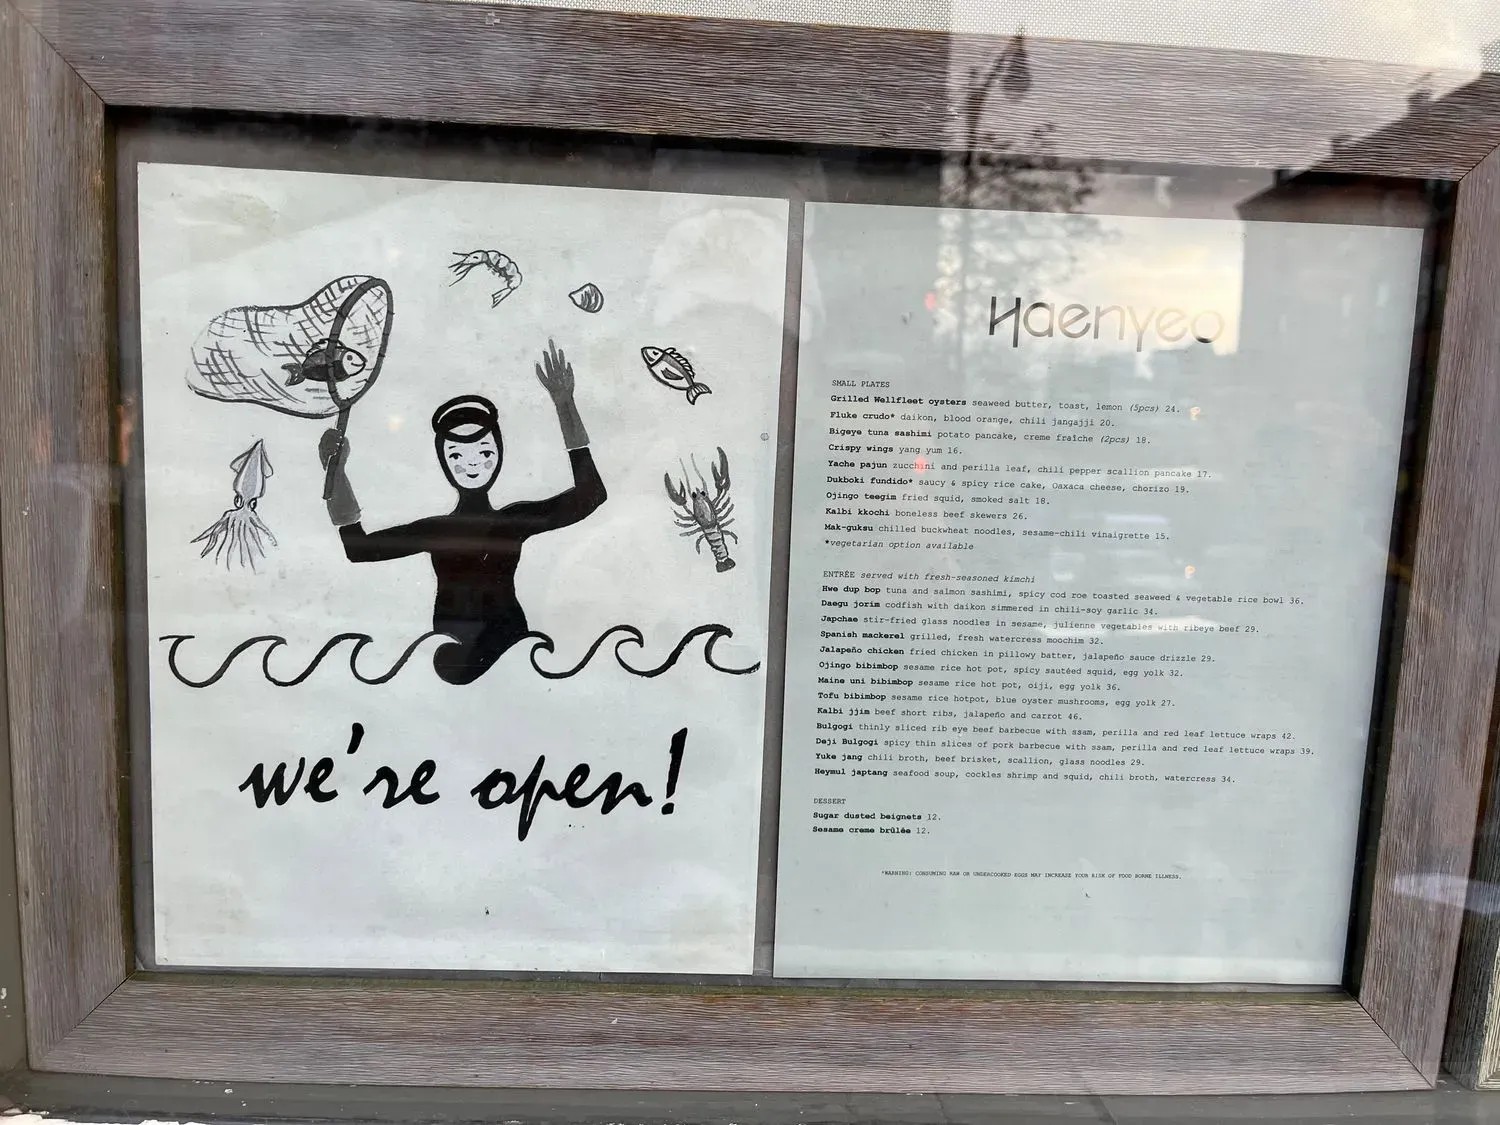 we're open!
Haenyeo
SMALL PLATES
Grilled Wellfleet oysters seaweed butter, toast, lemon (5pcs) 24.
Fluke crudo* daikon, blood orange, chili jangajji 20.
Bigeye tuna sashimi potato pancake, creme fraîche (2pcs) 18.
Crispy wings yang yum 16.
Yache pajun zucchini and perilla leaf, chili pepper scallion pancake 17.
Dukboki fundido* saucy & spicy rice cake, Oaxaca cheese, chorizo 19.
Ojingo teegim fried squid, smoked salt 18.
Kalbi kkochi boneless beef skewers 26.
Mak-guksu chilled buckwheat noodles, sesame-chili vinaigrette 15.
*vegetarian option available
ENTRÉE served with fresh-seasoned kimchi
Hwe dup bop tuna and salmon sashimi, spicy cod roe toasted seaweed & vegetable rice bowl 36.
Daegu jorim codfish with daikon simmered in chili-soy garlic 34.
Japchae stir-fried glass noodles in sesame, julienne vegetables with ribeye beef 29.
Spanish mackerel grilled, fresh watercress moochim 32.
Jalapeño chicken fried chicken in pillowy batter, jalapeño sauce drizzle 29.
Ojingo bibimbop sesame rice hot pot, spicy sautéed squid, egg yolk 32.
Maine uni bibimbop sesame rice hot pot, oiji, egg yolk 36.
Tofu bibimbop sesame rice hotpot, blue oyster mushrooms, egg yolk 27.
Kalbi jjim beef short ribs, jalapeño and carrot 46.
Bulgogi thinly sliced rib eye beef barbecue with ssam, perilla and red leaf lettuce wraps 42.
Deji Bulgogi spicy thin slices of pork barbecue with ssam, perilla and red leaf lettuce wraps 39.
Yuke jang chili broth, beef brisket, scallion, glass noodles 29.
Heymul japtang seafood soup, cockles shrimp and squid, chili broth, watercress 34.
DESSERT
Sugar dusted beignets 12.
Sesame creme brûlée 12.
*WARNING: CONSUMING RAW OR UNDERCOOKED EGGS MAY INCREASE YOUR RISK OF FOOD BORNE ILLNESS.